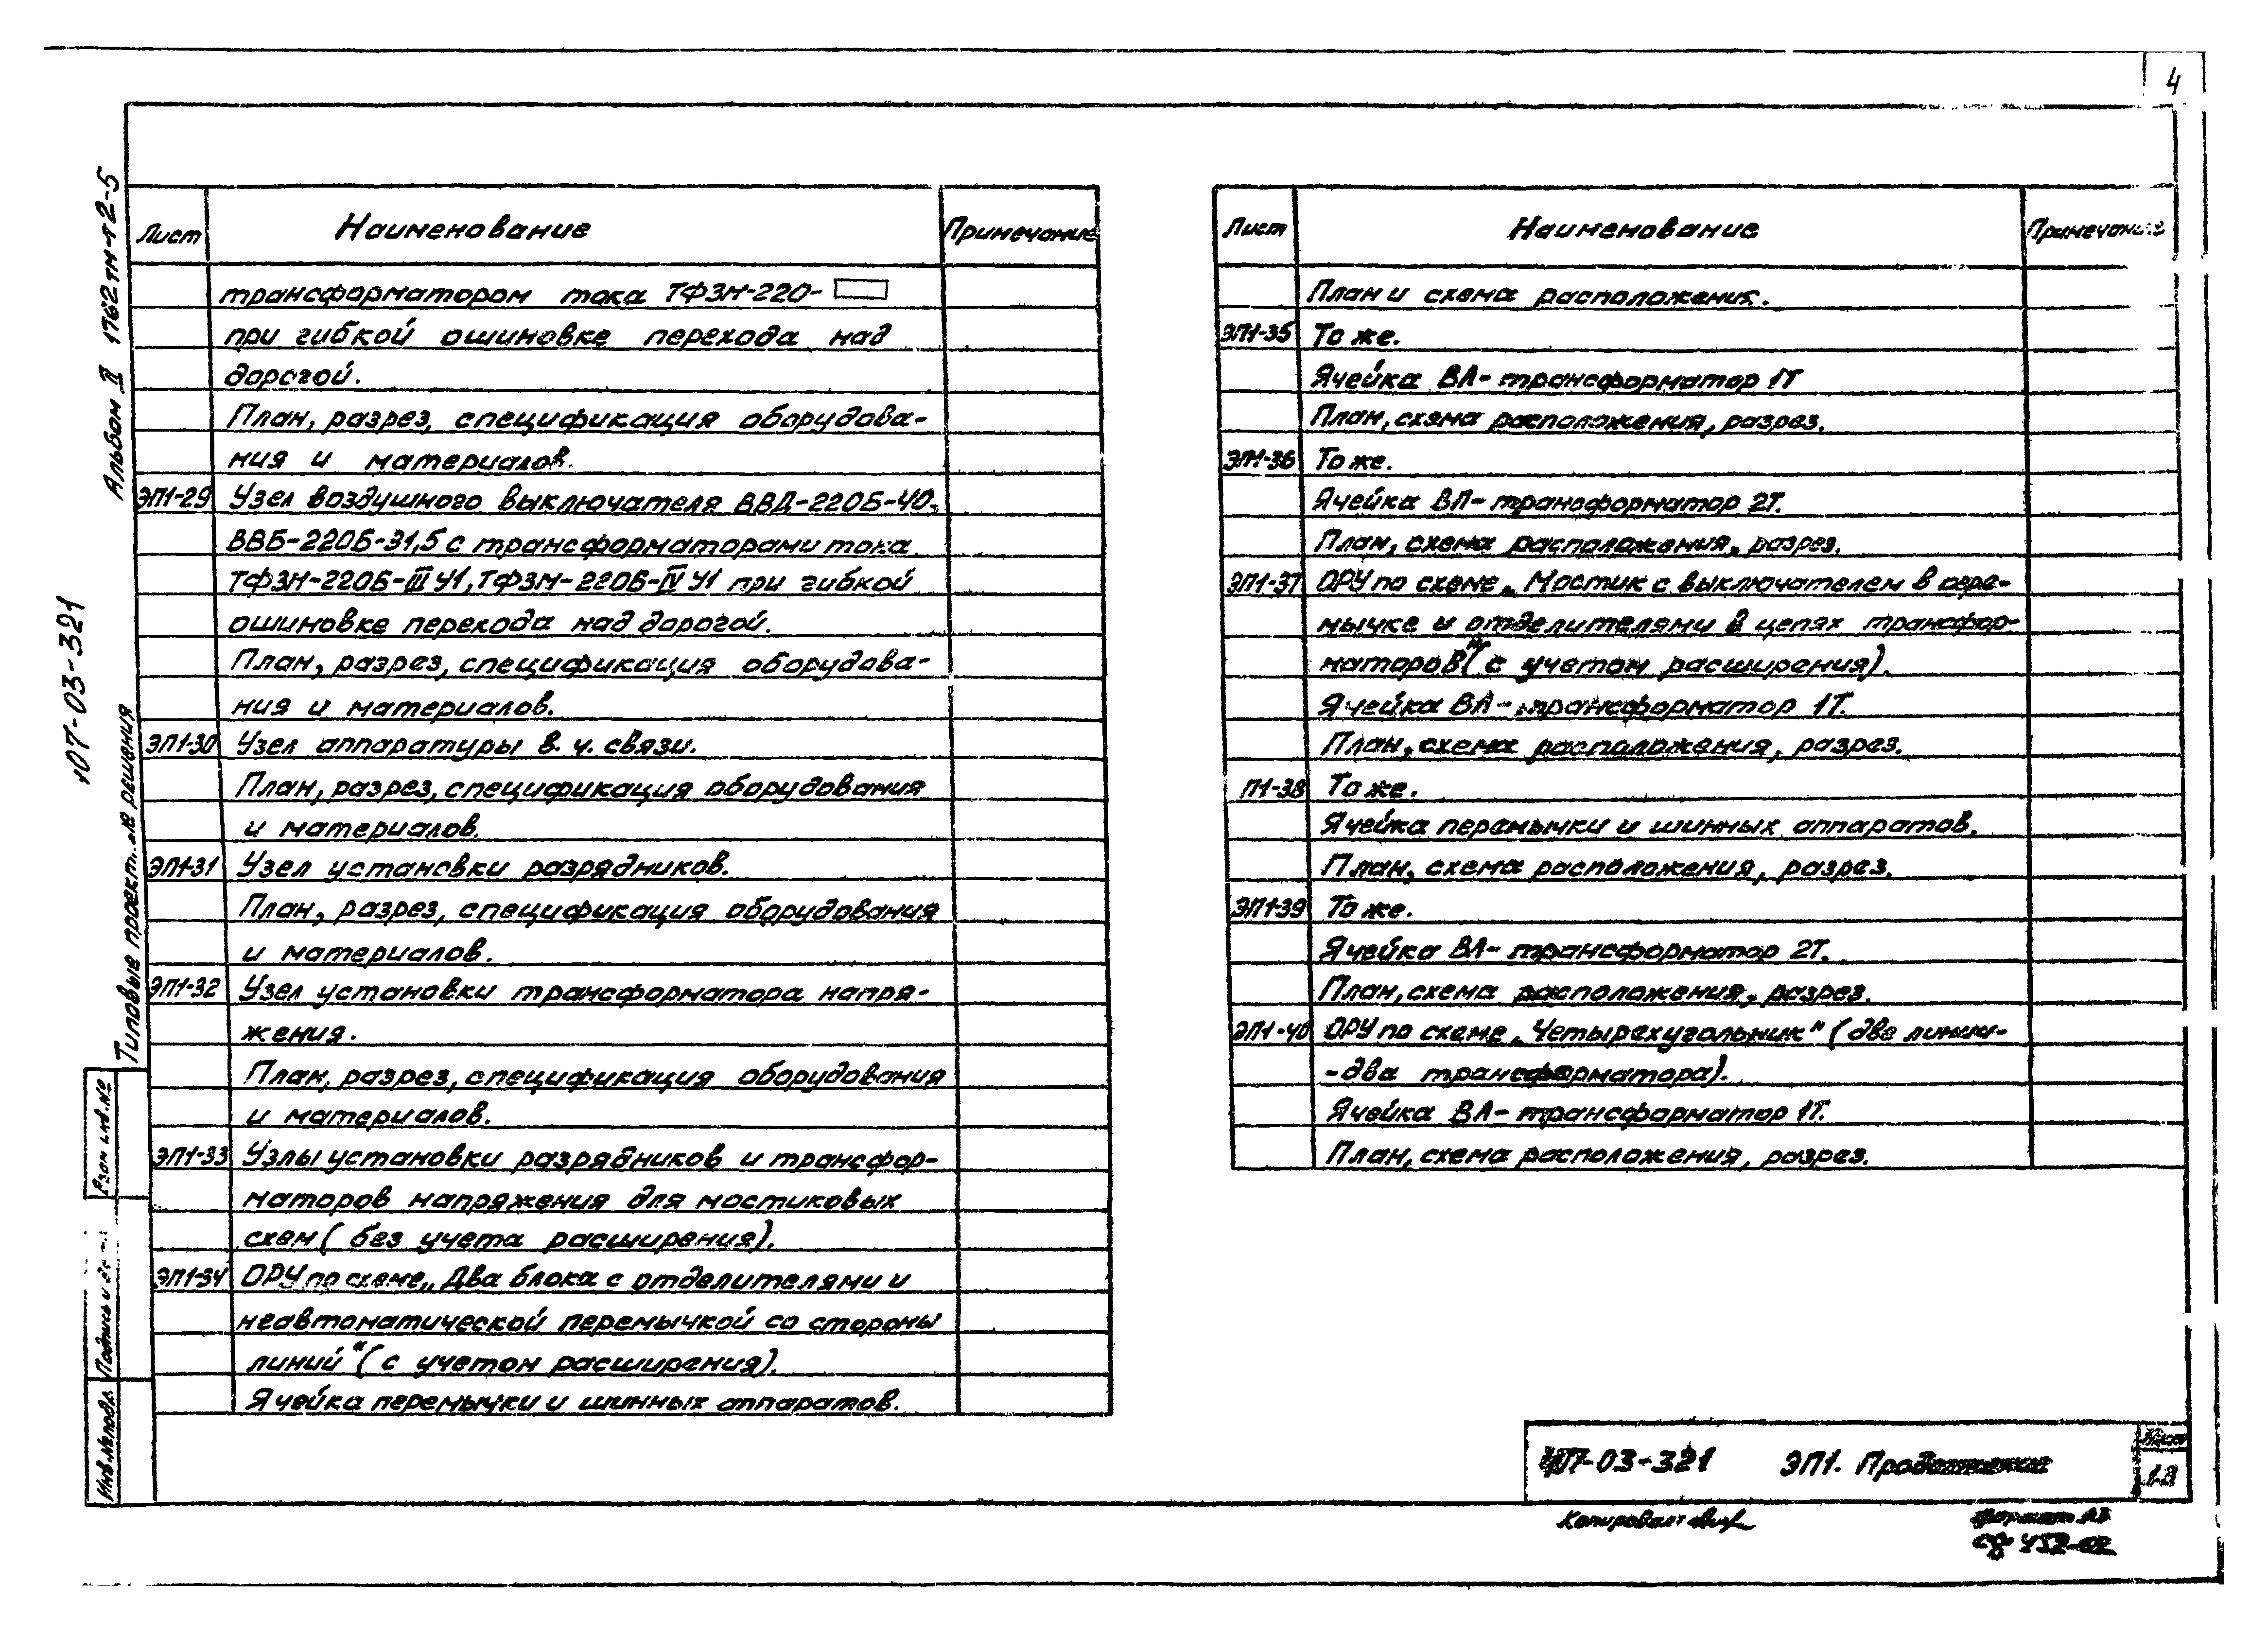 4
Лист Наименование Примечание
трансформатором тока ТФЗМ-220-
при гибкой ошиновке перехода над
дорогой.
План, разрез, спецификация оборудова-
ния и материалов.
ЭП1-29 Узел воздушного выключателя ВВД-220Б-40,
ВВБ-220Б-31,5 с трансформаторами тока
ТФЗМ-220Б-III У1, ТФЗМ-220Б-IV У1 при гибкой
ошиновке перехода над дорогой.
План, разрез, спецификация оборудова-
ния и материалов.
ЭП1-30 Узел аппаратуры в.ч. связи.
План, разрез, спецификация оборудования
и материалов.
ЭП1-31 Узел установки разрядников.
План, разрез, спецификация оборудования
и материалов.
ЭП1-32 Узел установки трансформатора напря-
жения.
План, разрез, спецификация оборудования
и материалов.
ЭП1-33 Узлы установки разрядников и трансфор-
маторов напряжения для мостиковых
схем (без учета расширения).
ЭП1-34 ОРУ по схеме „Два блока с отделителями и
неавтоматической перемычкой со стороны
линий" (с учетом расширения).
Ячейка перемычки и шинных аппаратов.
Лист Наименование Примечание
План и схема расположения.
ЭП1-35 То же.
Ячейка ВЛ-трансформатор 1Т
План, схема расположения, разрез.
ЭП1-36 То же.
Ячейка ВЛ-трансформатор 2Т.
План, схема расположения, разрез.
ЭП1-37 ОРУ по схеме „Мостик с выключателем в пере-
мычке и отделителями в цепях трансфор-
маторов" (с учетом расширения).
Ячейка ВЛ-трансформатор 1Т.
План, схема расположения, разрез.
П1-38 То же.
Ячейка перемычки и шинных аппаратов.
План, схема расположения, разрез.
ЭП1-39 То же.
Ячейка ВЛ-трансформатор 2Т.
План, схема расположения, разрез.
ЭП1-40 ОРУ по схеме „Четырехугольник" (две линии-
-два трансформатора).
Ячейка ВЛ-трансформатор 1Т.
План, схема расположения, разрез.
407-03-321
Типовые проектные решения Альбом II 1762тм-т2-5
Взам инв.№
Подпись и
Инв.№ подл.
407-03-321 ЭП1. Продолжение
Лист
Копировал:
Формат А3